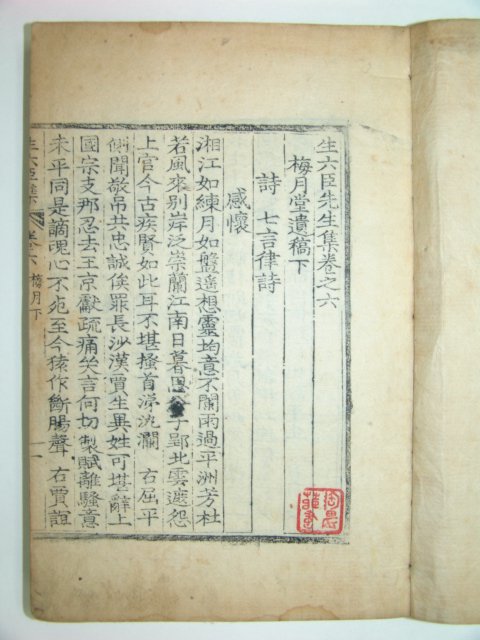 生六臣先生集卷之六
梅月堂遺稿下
詩 七言律詩
感懷
湘江如練月如盤遥想靈均意不闌雨過平洲芳杜
若風來別岸泛崇蘭江南日暮思公子郢北雲遮怨
上官今古疾賢如此耳不堪搔首涕汍瀾 右屈平
側聞敬吊共忠誠俟罪長沙漢賈生異姓可堪辭上
國宗支那忍去王京獻疏痛哭言何切製賦離騷意
未平同是謫魂心不死至今猿作斷腸聲 右賈誼
生六臣集 卷六 梅月下 一